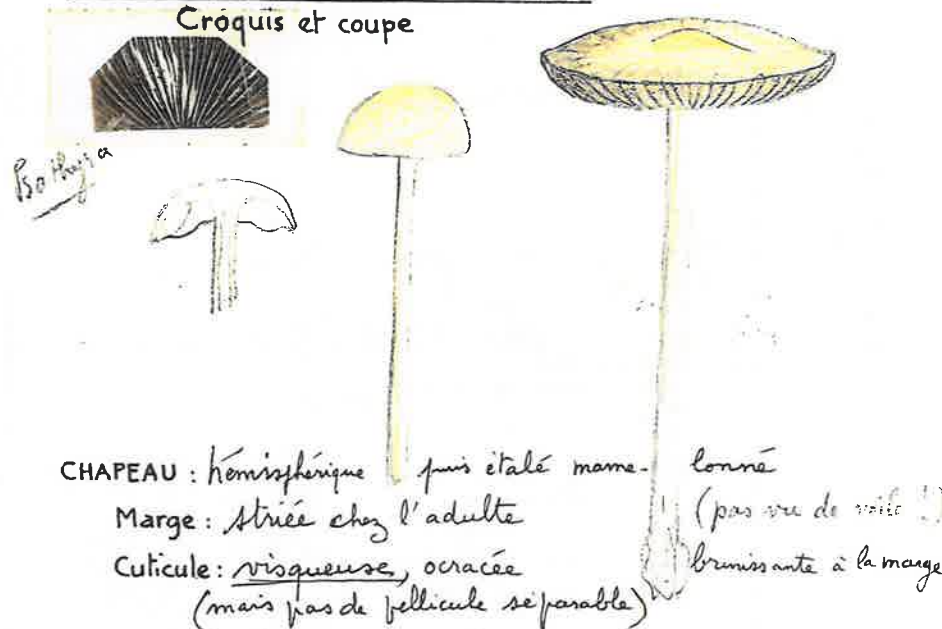 Croquis et coupe
CHAPEAU : hémisphérique puis étalé mame- lonné
Marge : striée chez l'adulte (pas vu de voile !)
Cuticule : visqueuse, ocracée brunissante à la marge
(mais pas de péllicule séparable)